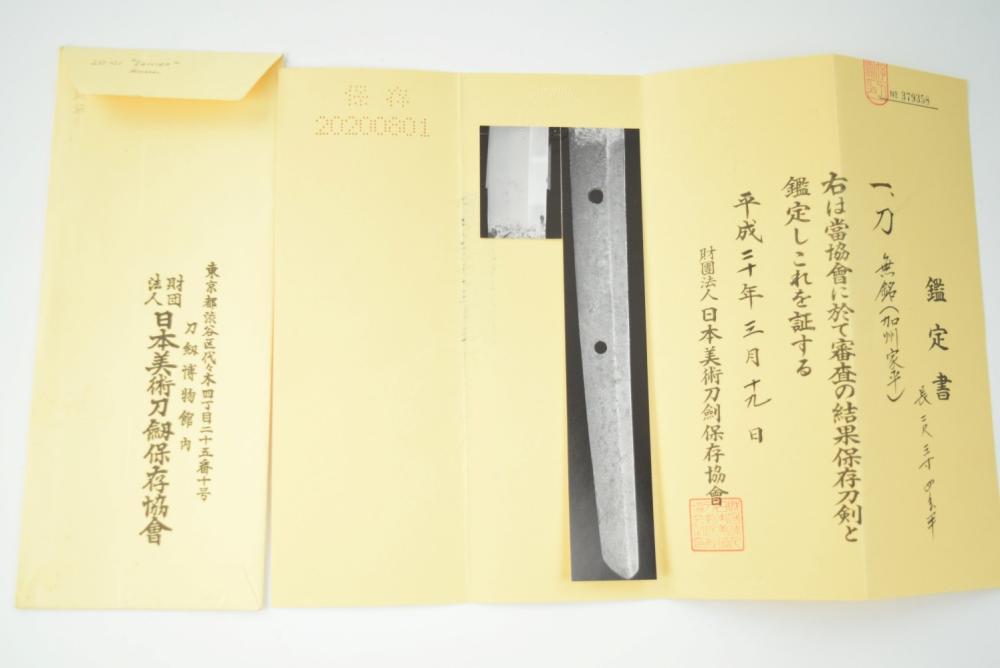 鑑定書
一、刀 無銘(加州家平)
長 二尺三寸四分半
右は當協會に於て審査の結果保存刀剣と
鑑定しこれを証する
平成二十年三月十九日
財團法人日本美術刀劍保存協會
№ 379358
保存
20200801
東京都渋谷区代々木四丁目二十五番十号
刀剣博物館内
財団法人日本美術刀劔保存協會